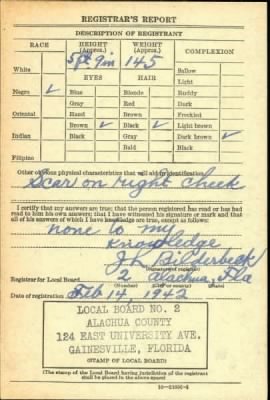 REGISTRAR'S REPORT
DESCRIPTION OF REGISTRANT
RACE HEIGHT (Approx.) WEIGHT (Approx.) COMPLEXION
5 ft 9 in 145
White Sallow
EYES HAIR Light
Negro ✓ Blue Blonde Ruddy
Gray Red Dark
Oriental Hazel Brown Freckled
Brown ✓ Black ✓ Light brown
Indian Black Gray Dark brown ✓
Bald Black
Filipino
Other obvious physical characteristics that will aid in identification
Scar on right cheek
I certify that my answers are true; that the person registered has read or has had
read to him his own answers; that I have witnessed his signature or mark and that
all of his answers of which I have knowledge are true, except as follows:
none to my
knowledge
J. L. Bilderbeck
(Signature of registrar)
Registrar for Local Board 2 Alachua, Fla
(Number) (City or county) (State)
Date of registration Feb 14, 1942
LOCAL BOARD NO. 2
ALACHUA COUNTY
124 EAST UNIVERSITY AVE.
GAINESVILLE, FLORIDA
(STAMP OF LOCAL BOARD)
(The stamp of the Local Board having jurisdiction of the registrant
shall be placed in the above space)